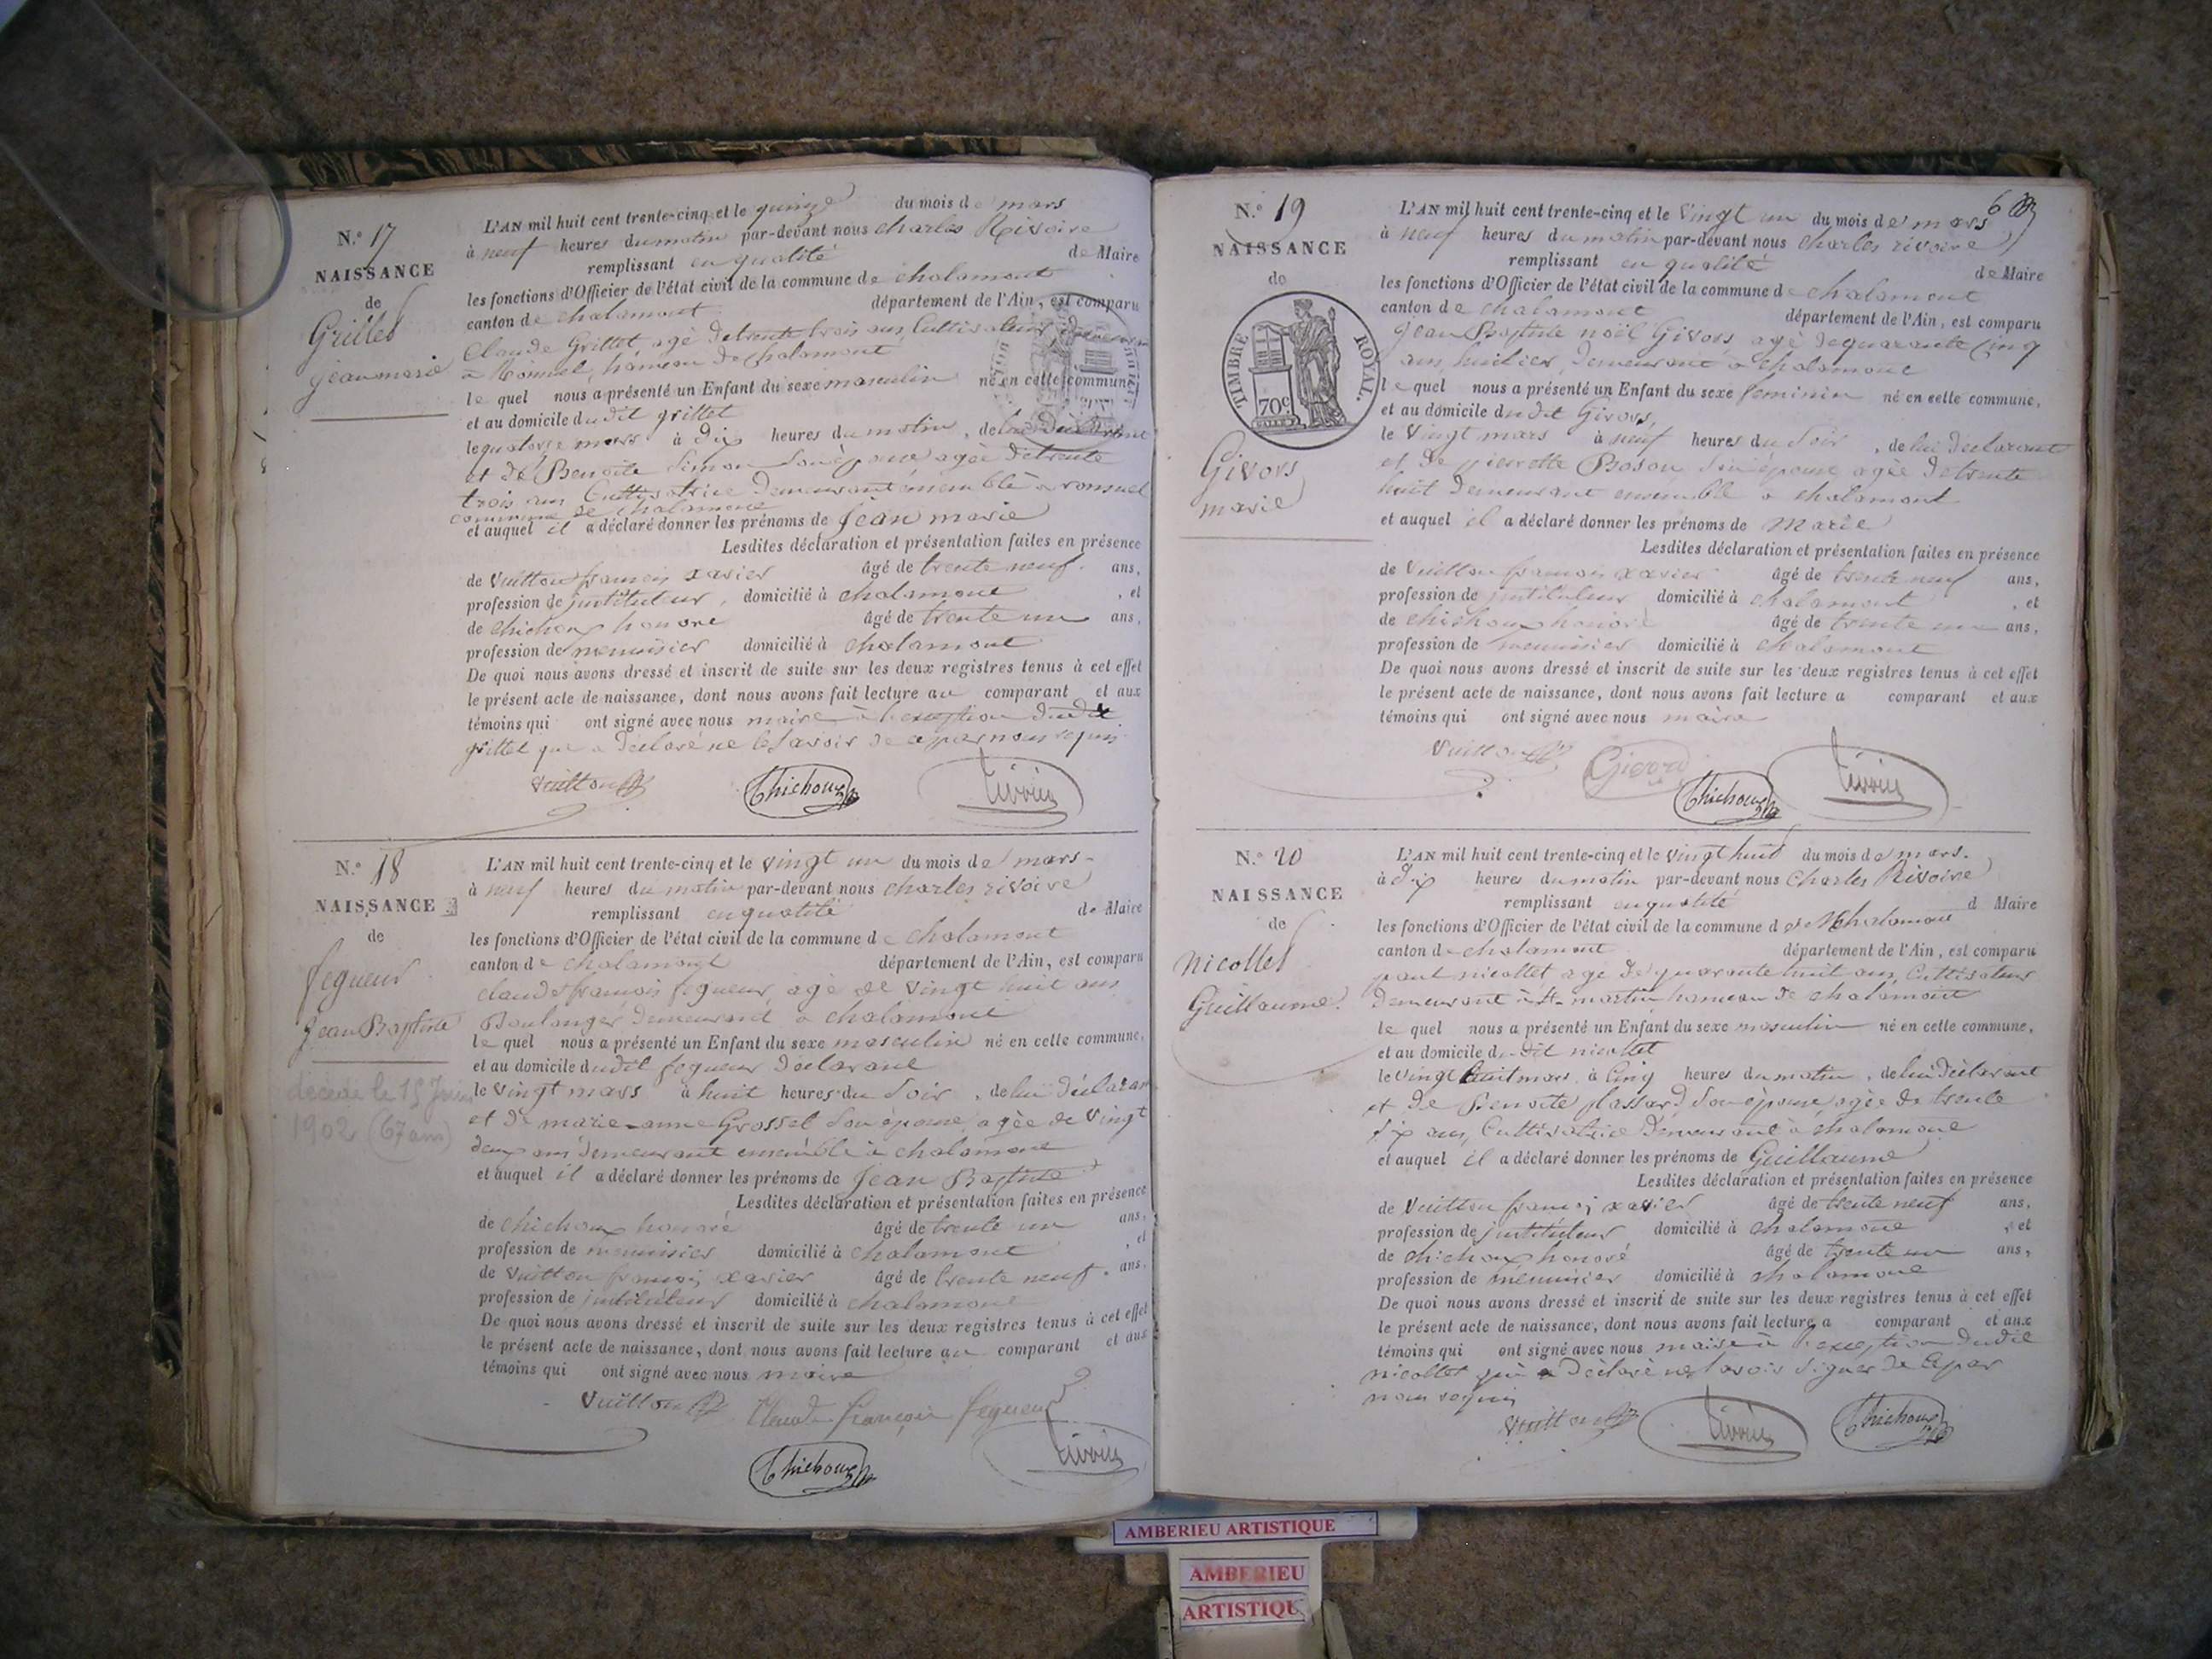 N.º 17
NAISSANCE
de
Grillet
jean marie
L'AN mil huit cent trente-cinq et le quinze du mois de mars
à neuf heures du matin par-devant nous charles Rivoire
remplissant en qualité de Maire
les fonctions d'Officier de l'état civil de la commune de chalamont
canton de chalamont département de l'Ain, est comparu
Claude Grillet, agé de trente trois ans, Cultivateur
à Ronsuel, hameau de chalamont
le quel nous a présenté un Enfant du sexe masculin né en cette commune
et au domicile du dit grillet
le quatorze mars à dix heures du matin, de lui
et de Benoite Simon son épouse agée de trente
trois ans Cultivatrice demeurant ensemble à ronsuel
commune de chalamont
et auquel il a déclaré donner les prénoms de jean marie
Lesdites déclaration et présentation faites en présence
de Vuitton françois xavier âgé de trente neuf ans,
profession de jnstituteur, domicilié à chalamont, et
de chichoux honoré âgé de trente un ans,
profession de menuisier domicilié à chalamont
De quoi nous avons dressé et inscrit de suite sur les deux registres tenus à cet effet
le présent acte de naissance, dont nous avons fait lecture au comparant et aux
témoins qui ont signé avec nous maire à l'exception dudit
grillet qui a déclaré ne le savoir de ce par nous requis
Vuitton Chichoux Rivoire
N.º 18
NAISSANCE
de
fegueur
Jean Baptiste
décédé le 15 Juin
1902 (67 ans)
L'AN mil huit cent trente-cinq et le vingt un du mois de mars
à neuf heures du matin par-devant nous charles rivoire
remplissant en qualité de Maire
les fonctions d'Officier de l'état civil de la commune de chalamont
canton de chalamont département de l'Ain, est comparu
claude françois fegueur, agé de vingt huit ans
Boulanger demeurant à chalamont
le quel nous a présenté un Enfant du sexe masculin né en cette commune,
et au domicile dudit fegueur déclarant
le vingt mars à huit heures du soir, de lui déclarant
et de marie-anne Grosset son épouse, agée de vingt
deux ans demeurant ensemble à chalamont
et auquel il a déclaré donner les prénoms de Jean Baptiste
Lesdites déclaration et présentation faites en présence
de chichoux honoré âgé de trente un ans,
profession de menuisier domicilié à chalamont, et
de Vuitton françois xavier âgé de trente neuf. ans.
profession de jnstituteur domicilié à chalamont
De quoi nous avons dressé et inscrit de suite sur les deux registres tenus à cet effet
le présent acte de naissance, dont nous avons fait lecture au comparant et aux
témoins qui ont signé avec nous maire
Vuitton Claude françois fegueur
Chichoux Rivoire
6
N.º 19
NAISSANCE
de
TIMBRE ROYAL.
70c
Givors
marie
L'AN mil huit cent trente-cinq et le vingt un du mois de mars
à neuf heures du matin par-devant nous charles rivoire
remplissant en qualité de Maire
les fonctions d'Officier de l'état civil de la commune de chalamont
canton de chalamont département de l'Ain, est comparu
jean Baptiste noël Givors agé de quarante cinq
ans, huilier, demeurant à chalamont
le quel nous a présenté un Enfant du sexe feminin né en cette commune,
et au domicile dudit Givors,
le vingt mars à neuf heures du soir, de lui déclarant
et de pierrette Boson son épouse agée de trente
huit demeurant ensemble à chalamont
et auquel il a déclaré donner les prénoms de Marie
Lesdites déclaration et présentation faites en présence
de Vuitton françois xavier âgé de trente neuf ans,
profession de jnstituteur domicilié à chalamont, et
de chichoux honoré âgé de trente un ans,
profession de menuisier domicilié à chalamont
De quoi nous avons dressé et inscrit de suite sur les deux registres tenus à cet effet
le présent acte de naissance, dont nous avons fait lecture a comparant et aux
témoins qui ont signé avec nous maire
Vuitton Givors
Chichoux Rivoire
N.º 20
NAISSANCE
de
Nicollet
Guillaume
L'AN mil huit cent trente-cinq et le vingt huit du mois de mars.
à dix heures du matin par-devant nous Charles Rivoire
remplissant en qualité d Maire
les fonctions d'Officier de l'état civil de la commune d de Chalamont
canton de chalamont département de l'Ain, est comparu
paul nicollet agé de quarante huit ans, Cultivateur
demeurant à St. martin hameau de chalamont
le quel nous a présenté un Enfant du sexe masculin né en cette commune,
et au domicile du dit nicollet
le vingt huit mars à Cinq heures du matin, de lui déclarant
et de Benoite plassard son épouse agée de trente
six ans, Cultivatrice demeurant à chalamont
et auquel il a déclaré donner les prénoms de Guillaume
Lesdites déclaration et présentation faites en présence
de Vuitton françois xavier âgé de trente neuf ans,
profession de jnstituteur domicilié à chalamont, et
de chichoux honoré âgé de trente un ans,
profession de menuisier domicilié à chalamont
De quoi nous avons dressé et inscrit de suite sur les deux registres tenus à cet effet
le présent acte de naissance, dont nous avons fait lecture a comparant et aux
témoins qui ont signé avec nous maire à l'exception dudit
nicollet qui a déclaré ne savoir signer de ce par
nous requis
Vuitton Rivoire Chichoux
AMBERIEU ARTISTIQUE
AMBERIEU
ARTISTIQUE